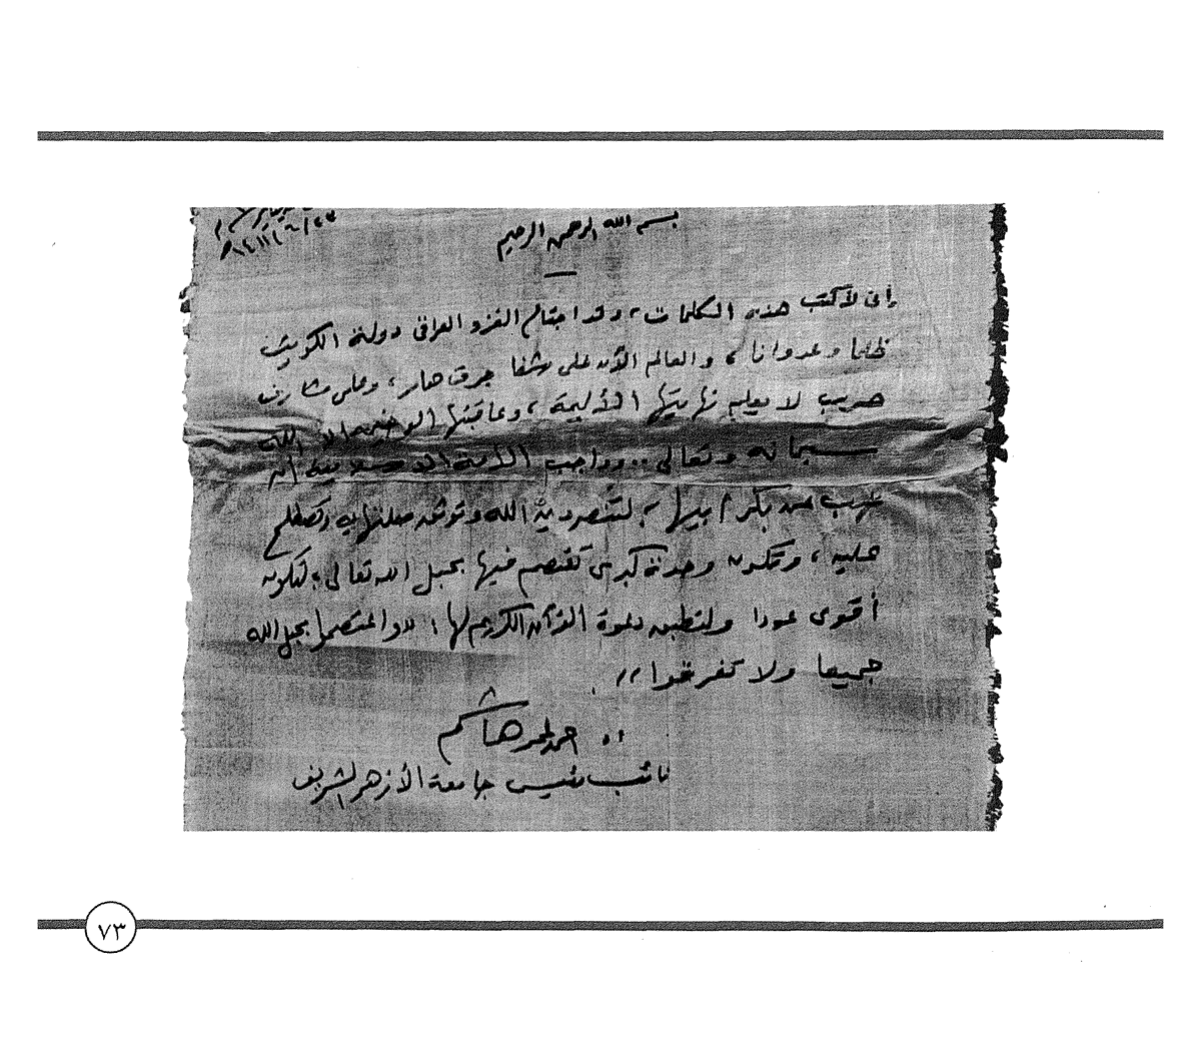 بسم الله الرحمن الرحيم
وإنى لأكتب هذه الكلمات، وقد اجتاح الغزو العراقى دولة الكويت
ظلما وعدوانا، والعالم الآن على شفا جرف هار، وعلى مشارف
حرب لا يعلم نهايتها الأليمة، وعاقبتها الوخيمة إلا الله
سبحانه وتعالى.. وواجب الأمة الإسلامية أن
تهب عن بكرة أبيها، لتنصر دين الله وتوثق صلتها به وتصطلح
عليه، وتكون وحدة كبرى تعتصم فيها بحبل الله تعالى؛ لتكون
أقوى عودا ولتطبق دعوة القرآن الكريم لها: "واعتصموا بحبل الله
جميعا ولا تفرقوا"
أ.د. أحمد عمر هاشم
نائب رئيس جامعة الأزهر الشريف
٧٣